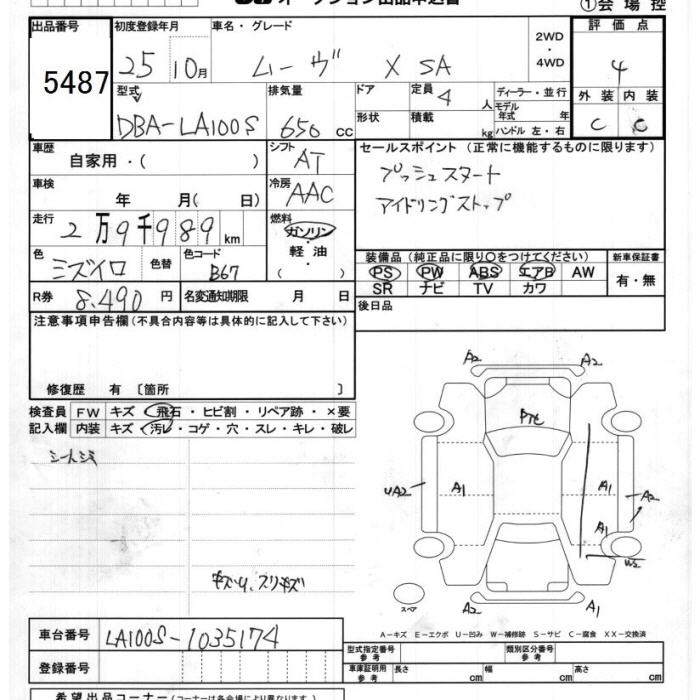 オークション出品申込書
①会場控
出品番号 初度登録年月 車名・グレード 2WD・4WD 評価点
5487 25 10月 ムーヴ X SA 4
型式 排気量 ドア 定員 4 人 ディーラー・並行 外装 内装
DBA-LA100S 650 cc 形状 積載 kg モデル年式 年 C C
ハンドル 左・右
車歴 自家用・( ) シフト AT セールスポイント (正常に機能するものに限ります)
車検 年 月( 日) 冷房 AAC プッシュスタート
アイドリングストップ
走行 2万9千989km 燃料 ガソリン・軽油・( )
色 ミズイロ 色替 色コード B67
装備品 (純正品に限り○をつけてください) 新車保証書
PS PW ABS エアB AW 有・無
SR ナビ TV カワ
R券 8,490 円 名変通知期限 月 日 後日品
注意事項申告欄 (不具合内容等は具体的に記入して下さい)
修復歴 有 〔箇所 〕
検査員 FW キズ・飛石・ヒビ割・リペア跡・×要
記入欄 内装 キズ・汚レ・コゲ・穴・スレ・キレ・破レ
シートシミ
A2 A2
UA2 A1 A1 A2
A1
W2
A2 A1
スペア
A-キズ E-エクボ U-凹み W-補修跡 S-サビ C-腐食 XX-交換済
車台番号 LA100S-1035174
型式指定番号 参考 類別区分番号 参考
登録番号 車庫証明用 参考 長さ cm 幅 cm 高さ cm
希望出品コーナー (コーナー名は各会場により異なります)